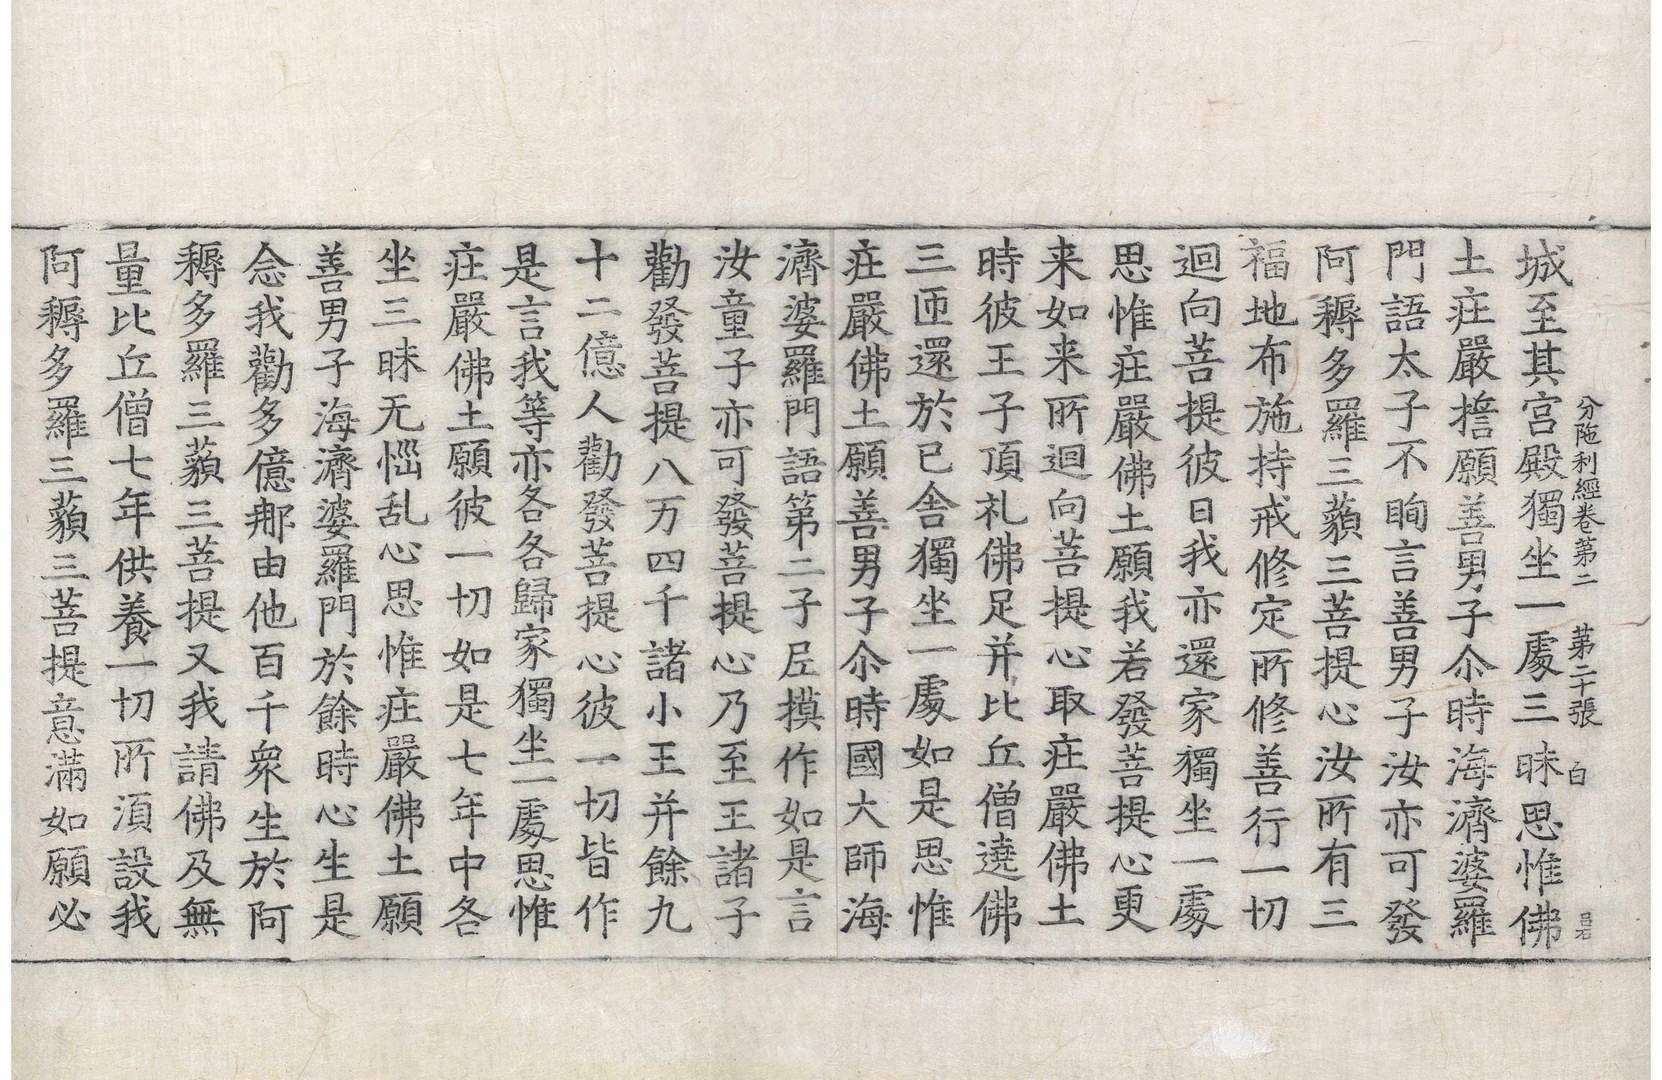 分陁利經卷第二　第二十張　白
城至其宮殿獨坐一處三昧思惟佛
土庄嚴擔願善男子尒時海濟婆羅
門語太子不眴言善男子汝亦可發
阿耨多羅三藐三菩提心汝所有三
福地布施持戒修定所修善行一切
迴向菩提彼日我亦還家獨坐一處
思惟庄嚴佛土願我若發菩提心更
来如来所迴向菩提心取庄嚴佛土
時彼王子頂礼佛足并比丘僧遶佛
三匝還於已舍獨坐一處如是思惟
庄嚴佛土願善男子尒時國大師海
濟婆羅門語第二子㞐摸作如是言
汝童子亦可發菩提心乃至王諸子
勸發菩提八万四千諸小王并餘九
十二億人勸發菩提心彼一切皆作
是言我等亦各各歸家獨坐一處思惟
庄嚴佛土願彼一切如是七年中各
坐三昧无惱乱心思惟庄嚴佛土願
善男子海濟婆羅門於餘時心生是
念我勸多億那由他百千衆生於阿
耨多羅三藐三菩提又我請佛及無
量比丘僧七年供養一切所湏設我
阿耨多羅三藐三菩提意滿如願必